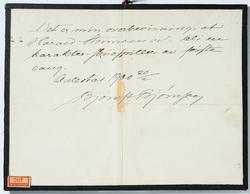 Det er min overbevisning, at
Harald
karakter-skuespiller av første
rang.
Aulestad 1900 20/2
Bjørnst. Bjørnson